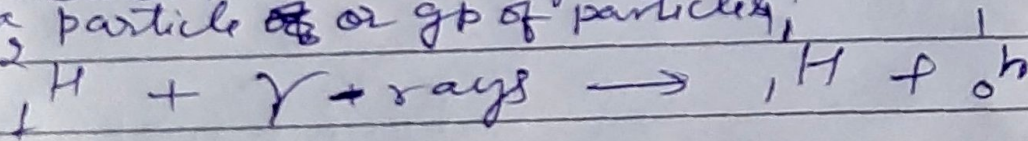 particle or gp of particles,
²₁H + γ-rays → ¹₁H + ¹₀n